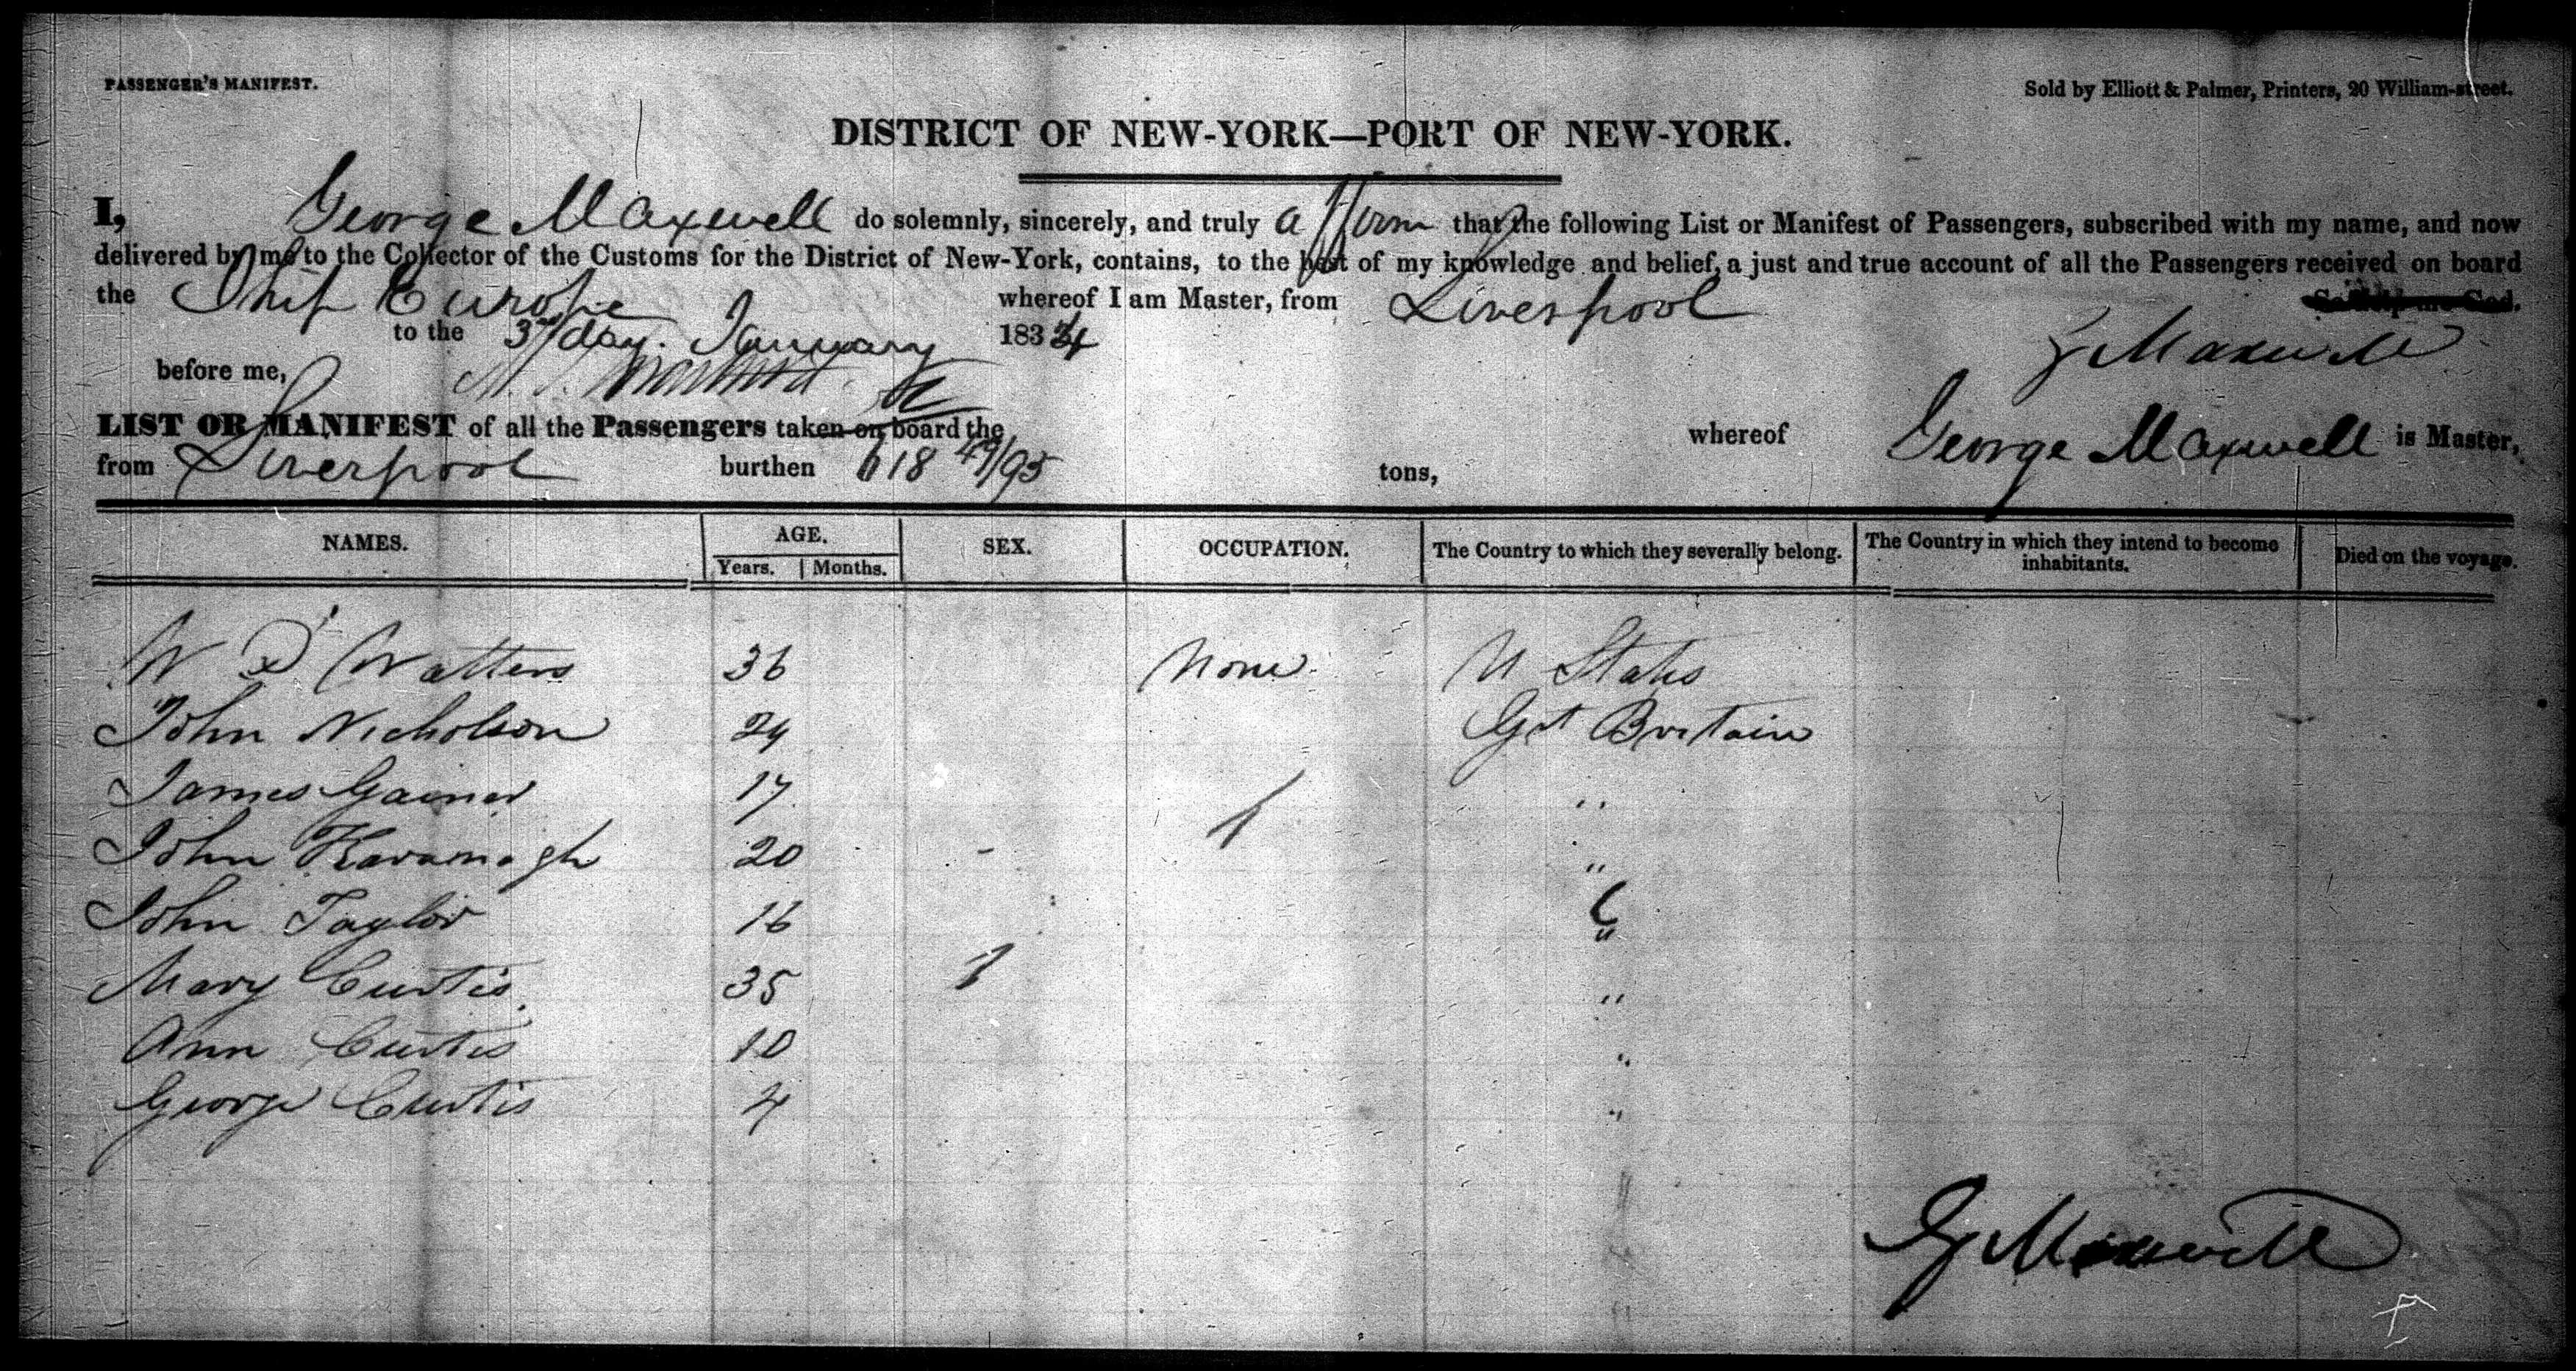 PASSENGER'S MANIFEST.
Sold by Elliott & Palmer, Printers, 20 William-street.
DISTRICT OF NEW-YORK—PORT OF NEW-YORK.
I, George Maxwell do solemnly, sincerely, and truly affirm that the following List or Manifest of Passengers, subscribed with my name, and now
delivered by me to the Collector of the Customs for the District of New-York, contains, to the best of my knowledge and belief, a just and true account of all the Passengers received on board
the Ship Europe whereof I am Master, from Liverpool So help me God.
to the 3d day. January 1834 G Maxwell
before me,
LIST OR MANIFEST of all the Passengers taken on board the whereof George Maxwell is Master,
from Liverpool burthen 618 49/95 tons,
NAMES. AGE. SEX. OCCUPATION. The Country to which they severally belong. The Country in which they intend to become inhabitants. Died on the voyage.
Years. Months.
W D Watters 36 None U States
John Nicholson 24 Gt Britain
James Gainer 17 "
John Kavanagh 20 - "
John Taylor 16 "
Mary Curtis. 35 "
Ann Curtis 10 "
George Curtis 4 "
G Maxwell